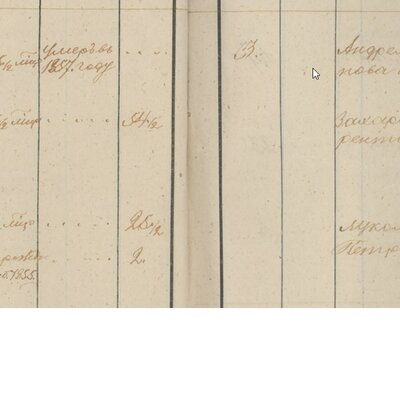 умеръ въ
1857. году
3.
Андре
нова
54 1/2
Захар
рент
25 1/2
Лука
2.
Петр
1855.